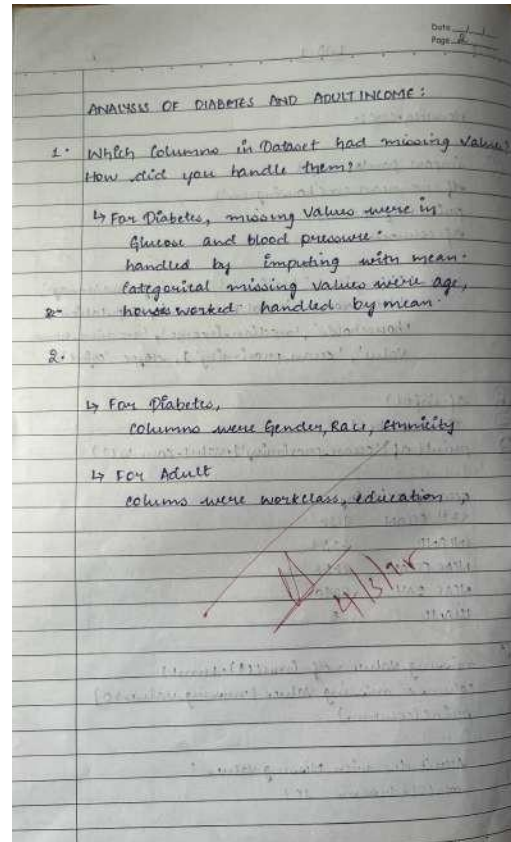 Date / /
Page 2
ANALYSIS OF DIABETES AND ADULT INCOME:
1. Which Columns in Dataset had missing Values?
How did you handle them?
↳ For Diabetes, missing Values were in
Glucose and blood pressure.
handled by imputing with mean.
Categorical missing values were age,
hours worked handled by mean.
2.
↳ For Diabetes,
columns were Gender, Race, Ethnicity
↳ For Adult
colums were workclass, education